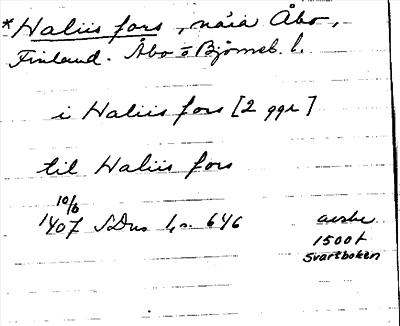 *Haliis fors, nära Åbo,
Finland. Åbo o Björneb. l.
i Haliis fors [2 ggr]
til Haliis fors
10/6
1407 SDns 1, s. 646 avskr
1500t
Svartboken